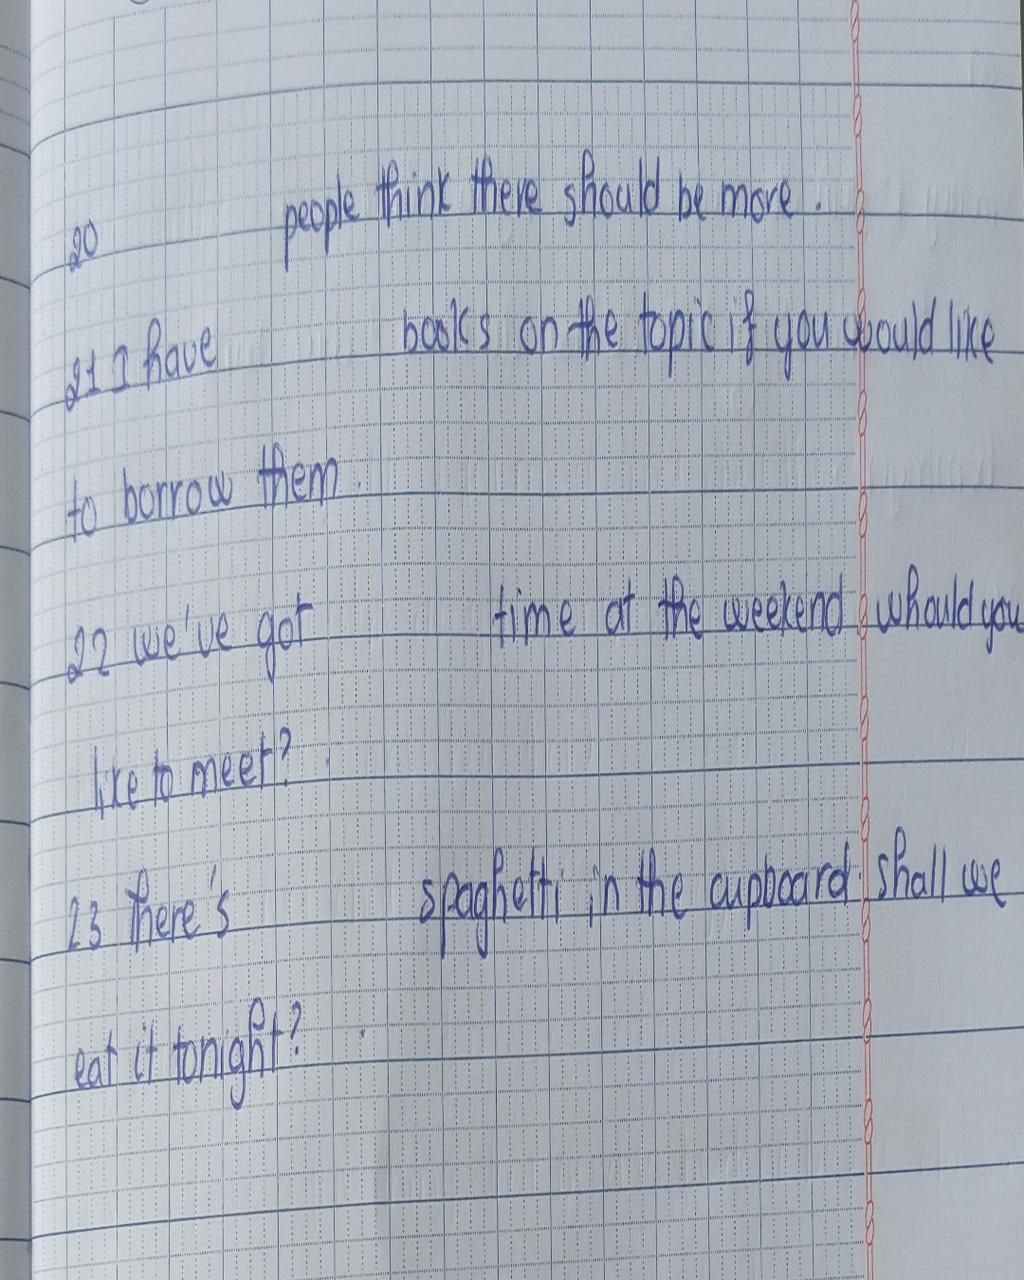 20 people think there should be more.
21 I have books on the topic if you would like
to borrow them.
22 we've got time at the weekend whould you
like to meet?
23 there's spaghetti in the cupboard. shall we
eat it tonight?